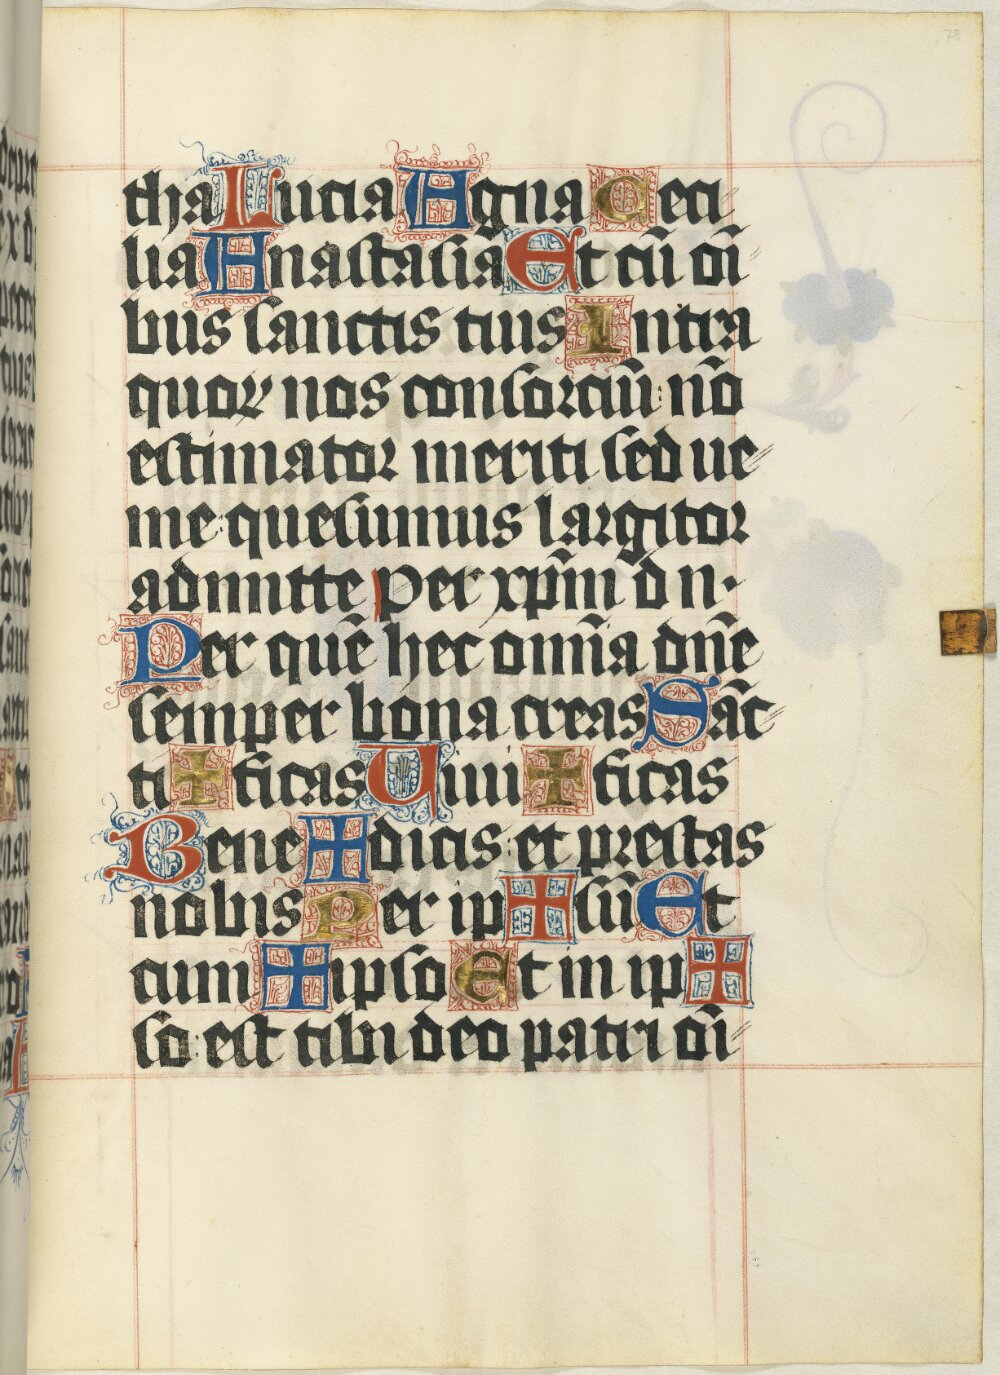 tha Lucia Agna Ceci
lia Anastasia Et cū oī
bus sanctis tuis Intra
quor nos consorciū: nō
estimator meriti sed ue
nie quesumus largitor
admitte Per xp̄m d n.
Per quē hec omīa dn̄e
semper bona creas Sāc
ti + ficas Uiui + ficas
Bene + dicis et prestas
nobis Per ip + sū Et
cum + ipso Et in ip +
so: est tibi deo patri oī
78